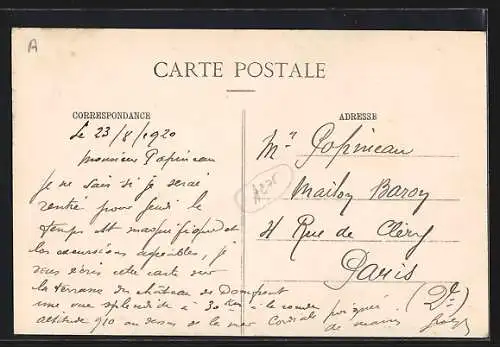 A
CARTE POSTALE
CORRESPONDANCE
ADRESSE
Le 23/8/1920
Monsieur Papineau
Je ne sais si je serai
rentré pour jeudi le
temps est magnifique et
les excursions agréables, je
vous écris cette carte sur
la terrasse du château de Domfront
une vue splendide à 30 à la ronde
altitude 910 au dessus de la mer
Cordiale poignée
de mains
Mr Papineau
Maison Baron
41 Rue de Cléry
Paris
(2e)